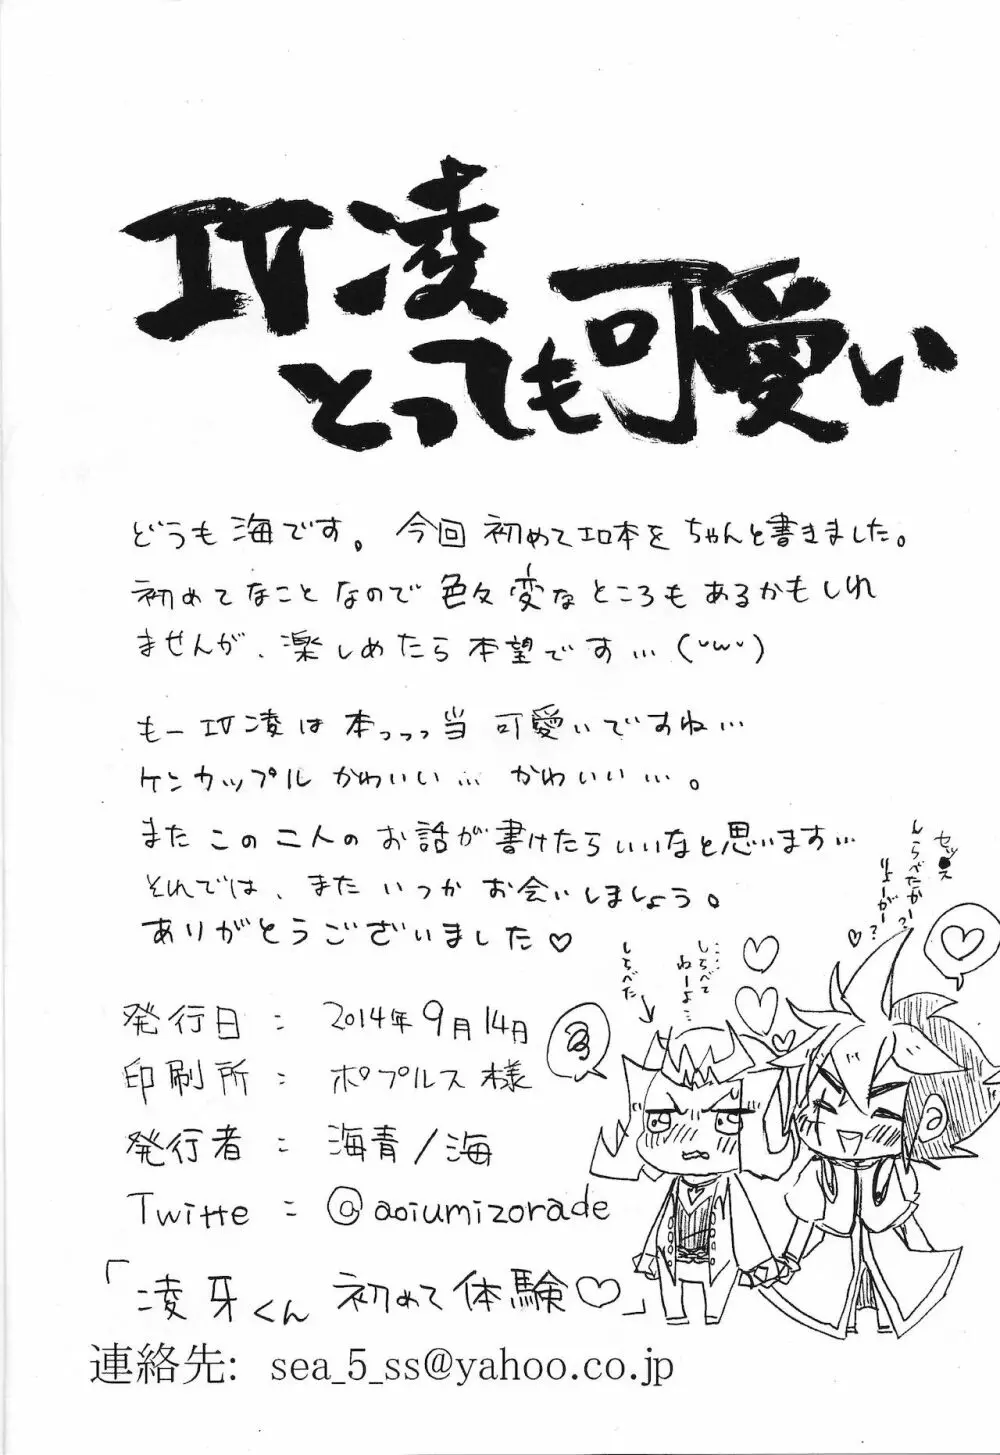 IV凌
とっても可愛い
どうも海です。今回初めてエロ本をちゃんと書きました。
初めてなことなので色々変なところもあるかもしれ
ませんが、楽しめたら本望です…(˘ω˘)
もーIV凌は本っっっ当可愛いですね…
ケンカップルかわいい…かわいい…。
またこの二人のお話が書けたらいいなと思います…
それでは、またいつかお会いしましょう。
ありがとうございました♡
セッ●ス
しらべたかー?
りょーがー?
♡
……
しらべて
ねーよ…
しらべた
発行日：2014年9月14日
印刷所：ポプルス様
発行者：海青/海
Twitte：@aoiumizorade
「凌牙くん初めて体験♡」
連絡先: sea_5_ss@yahoo.co.jp